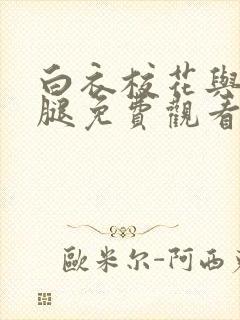 白衣校花與
腿免費觀看
歐米尔-阿西